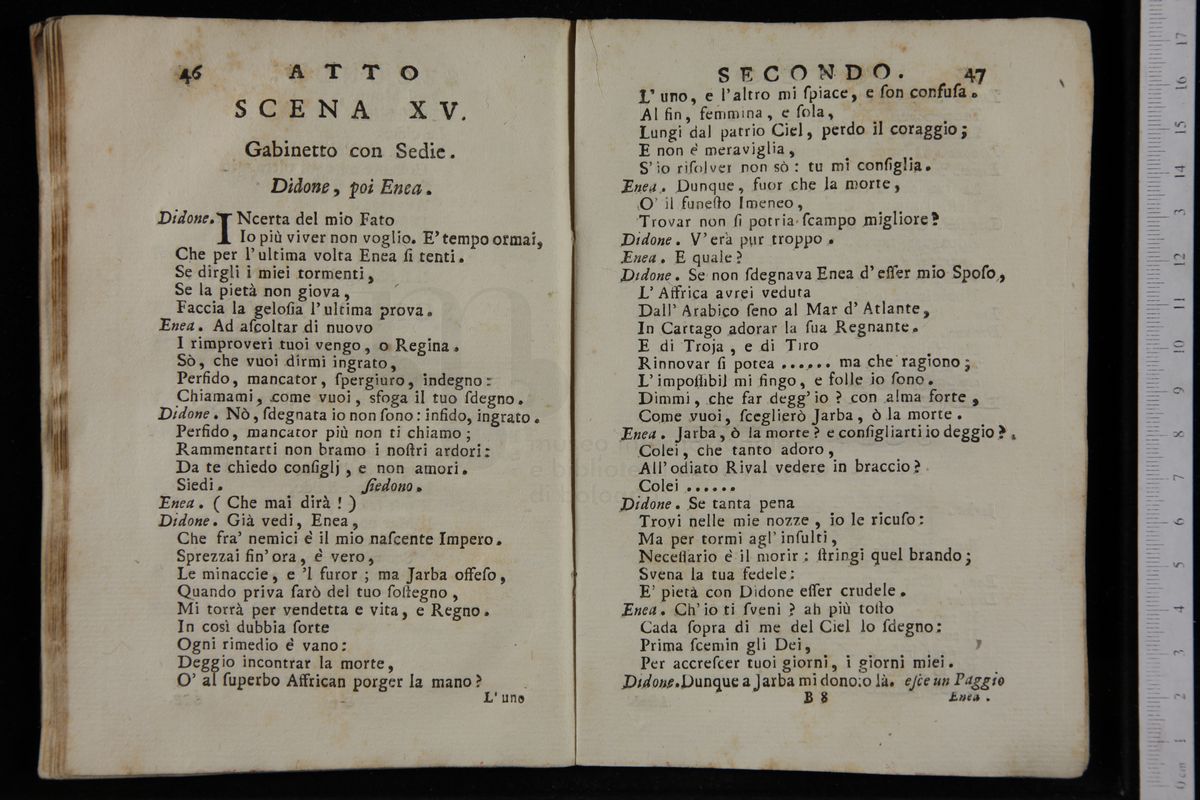 46 ATTO
SCENA XV.
Gabinetto con Sedie.
Didone, poi Enea.
Didone. INcerta del mio Fato
Io più viver non voglio. E' tempo ormai,
Che per l'ultima volta Enea ſi tenti.
Se dirgli i miei tormenti,
Se la pietà non giova,
Faccia la geloſia l'ultima prova.
Enea. Ad aſcoltar di nuovo
I rimproveri tuoi vengo, o Regina.
Sò, che vuoi dirmi ingrato,
Perfido, mancator, ſpergiuro, indegno:
Chiamami, come vuoi, sfoga il tuo ſdegno.
Didone. Nò, ſdegnata io non ſono: infido, ingrato.
Perfido, mancator più non ti chiamo;
Rammentarti non bramo i noſtri ardori:
Da te chiedo conſiglj, e non amori.
Siedi. ſiedono.
Enea. ( Che mai dirà ! )
Didone. Già vedi, Enea,
Che fra' nemici è il mio naſcente Impero.
Sprezzai fin' ora, è vero,
Le minaccie, e 'l furor; ma Jarba offeſo,
Quando priva ſarò del tuo ſoſtegno,
Mi torrà per vendetta e vita, e Regno.
In così dubbia ſorte
Ogni rimedio è vano:
Deggio incontrar la morte,
O' al ſuperbo Affrican porger la mano?
L' uno
SECONDO. 47
L' uno, e l'altro mi ſpiace, e ſon confuſa.
Al fin, femmina, e ſola,
Lungi dal patrio Ciel, perdo il coraggio;
E non è meraviglia,
S' io riſolver non sò: tu mi conſiglia.
Enea. Dunque, fuor che la morte,
O' il funeſto Imeneo,
Trovar non ſi potria ſcampo migliore?
Didone. V' era pur troppo.
Enea. E quale?
Didone. Se non ſdegnava Enea d' eſſer mio Spoſo,
L' Affrica avrei veduta
Dall' Arabico ſeno al Mar d' Atlante,
In Cartago adorar la ſua Regnante.
E di Troja, e di Tiro
Rinnovar ſi potea ...... ma che ragiono;
L' impoſſibil mi fingo, e folle io ſono.
Dimmi, che far degg' io ? con alma forte,
Come vuoi, ſceglierò Jarba, ò la morte.
Enea. Jarba, ò la morte? e conſigliarti io deggio?
Colei, che tanto adoro,
All' odiato Rival vedere in braccio?
Colei ......
Didone. Se tanta pena
Trovi nelle mie nozze, io le ricuſo:
Ma per tormi agl' inſulti,
Neceſſario è il morir: ſtringi quel brando;
Svena la tua fedele:
E' pietà con Didone eſſer crudele.
Enea. Ch' io ti ſveni ? ah più toſto
Cada ſopra di me del Ciel lo ſdegno:
Prima ſcemin gli Dei,
Per accreſcer tuoi giorni, i giorni miei.
Didone. Dunque a Jarba mi dono: o là. eſce un Paggio
B 8 Enea.